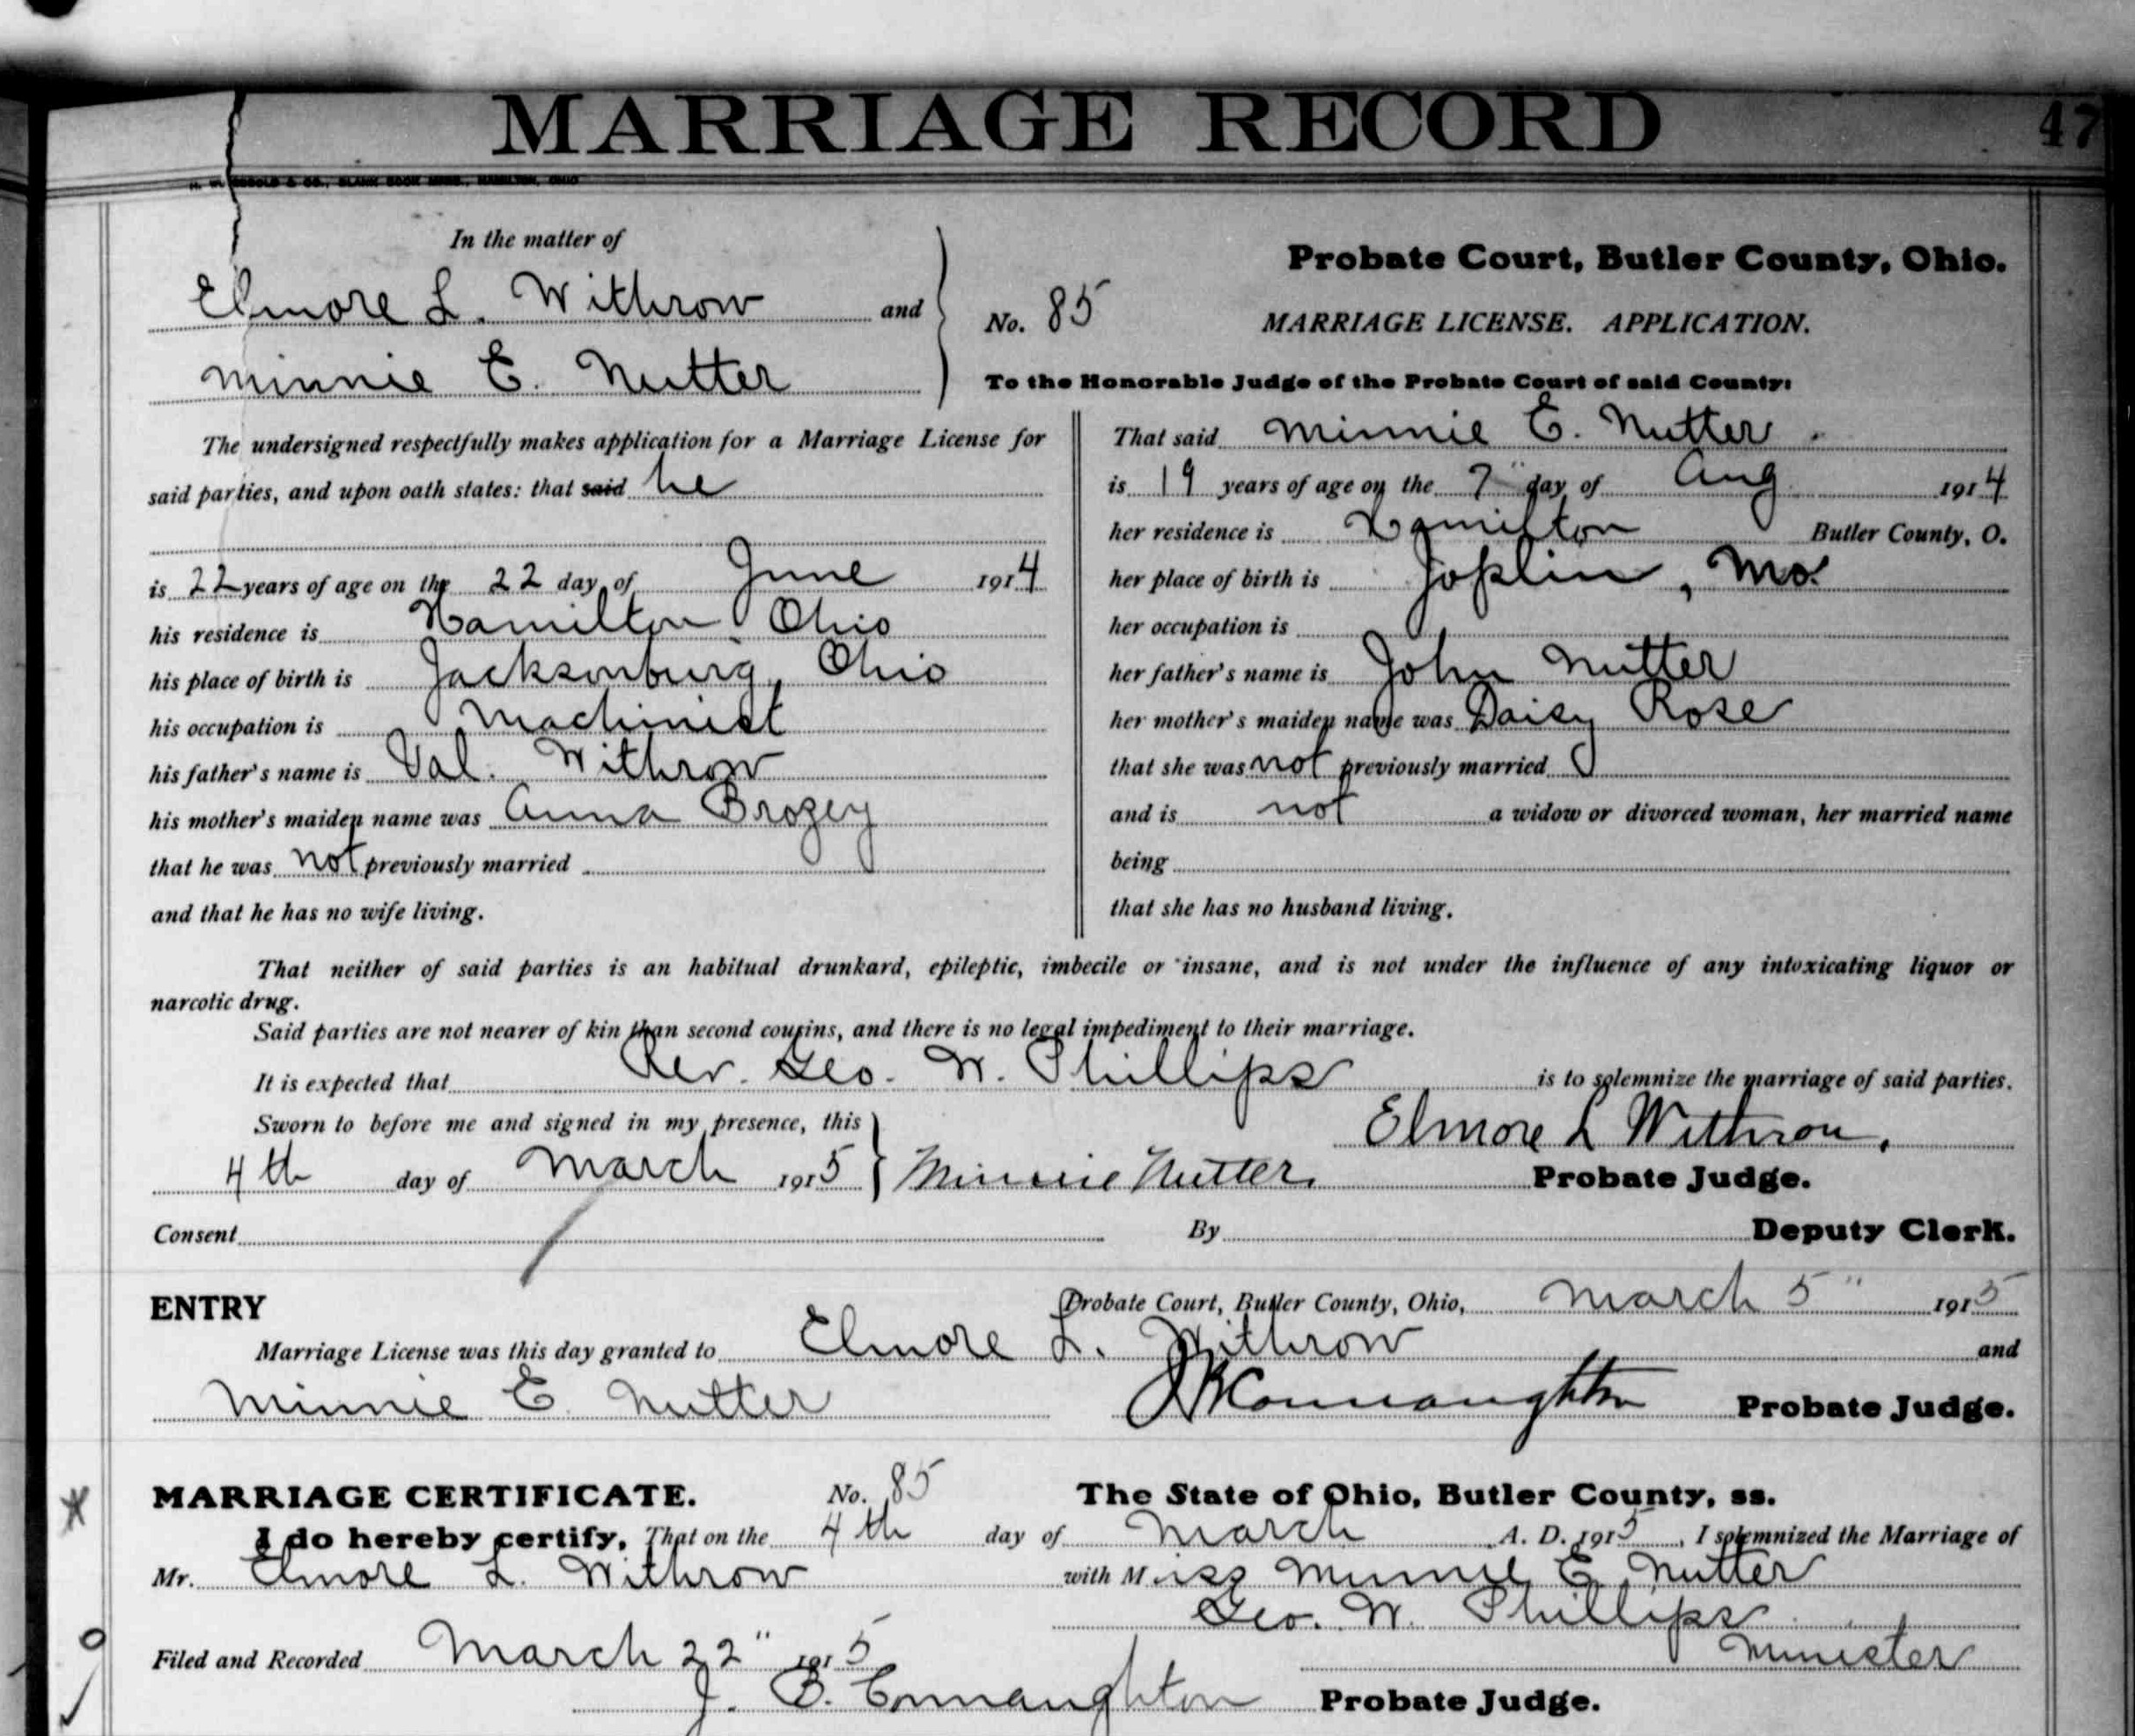 MARRIAGE RECORD
47
In the matter of
Elmore L. Withrow and
Minnie E. Nutter
Probate Court, Butler County, Ohio.
No. 85 MARRIAGE LICENSE. APPLICATION.
To the Honorable Judge of the Probate Court of said County:
The undersigned respectfully makes application for a Marriage License for
said parties, and upon oath states: that said he
is 22 years of age on the 22 day of June 1914
his residence is Hamilton Ohio
his place of birth is Jacksonburg, Ohio
his occupation is Machinist
his father's name is Val. Withrow
his mother's maiden name was Anna Brozey
that he was not previously married
and that he has no wife living.
That said Minnie E. Nutter
is 19 years of age on the 7" day of Aug 1914
her residence is Hamilton Butler County, O.
her place of birth is Joplin, Mo.
her occupation is
her father's name is John Nutter
her mother's maiden name was Daisy Rose
that she was not previously married
and is not a widow or divorced woman, her married name
being
that she has no husband living.
That neither of said parties is an habitual drunkard, epileptic, imbecile or insane, and is not under the influence of any intoxicating liquor or
narcotic drug.
Said parties are not nearer of kin than second cousins, and there is no legal impediment to their marriage.
It is expected that Rev. Geo. W. Phillips is to solemnize the marriage of said parties.
Sworn to before me and signed in my presence, this
Elmore L Withrow.
4th day of March 1915 } Minnie Nutter. Probate Judge.
Consent By Deputy Clerk.
ENTRY Probate Court, Butler County, Ohio, March 5" 1915
Marriage License was this day granted to Elmore L. Withrow and
Minnie E. Nutter JB Connaughton Probate Judge.
MARRIAGE CERTIFICATE. No. 85 The State of Ohio, Butler County, ss.
I do hereby certify, That on the 4th day of March A. D. 1915, I solemnized the Marriage of
Mr. Elmore L. Withrow with Miss Minnie E. Nutter
Geo. W. Phillips
Filed and Recorded March 22" 1915 Minister
J. B. Connaughton Probate Judge.